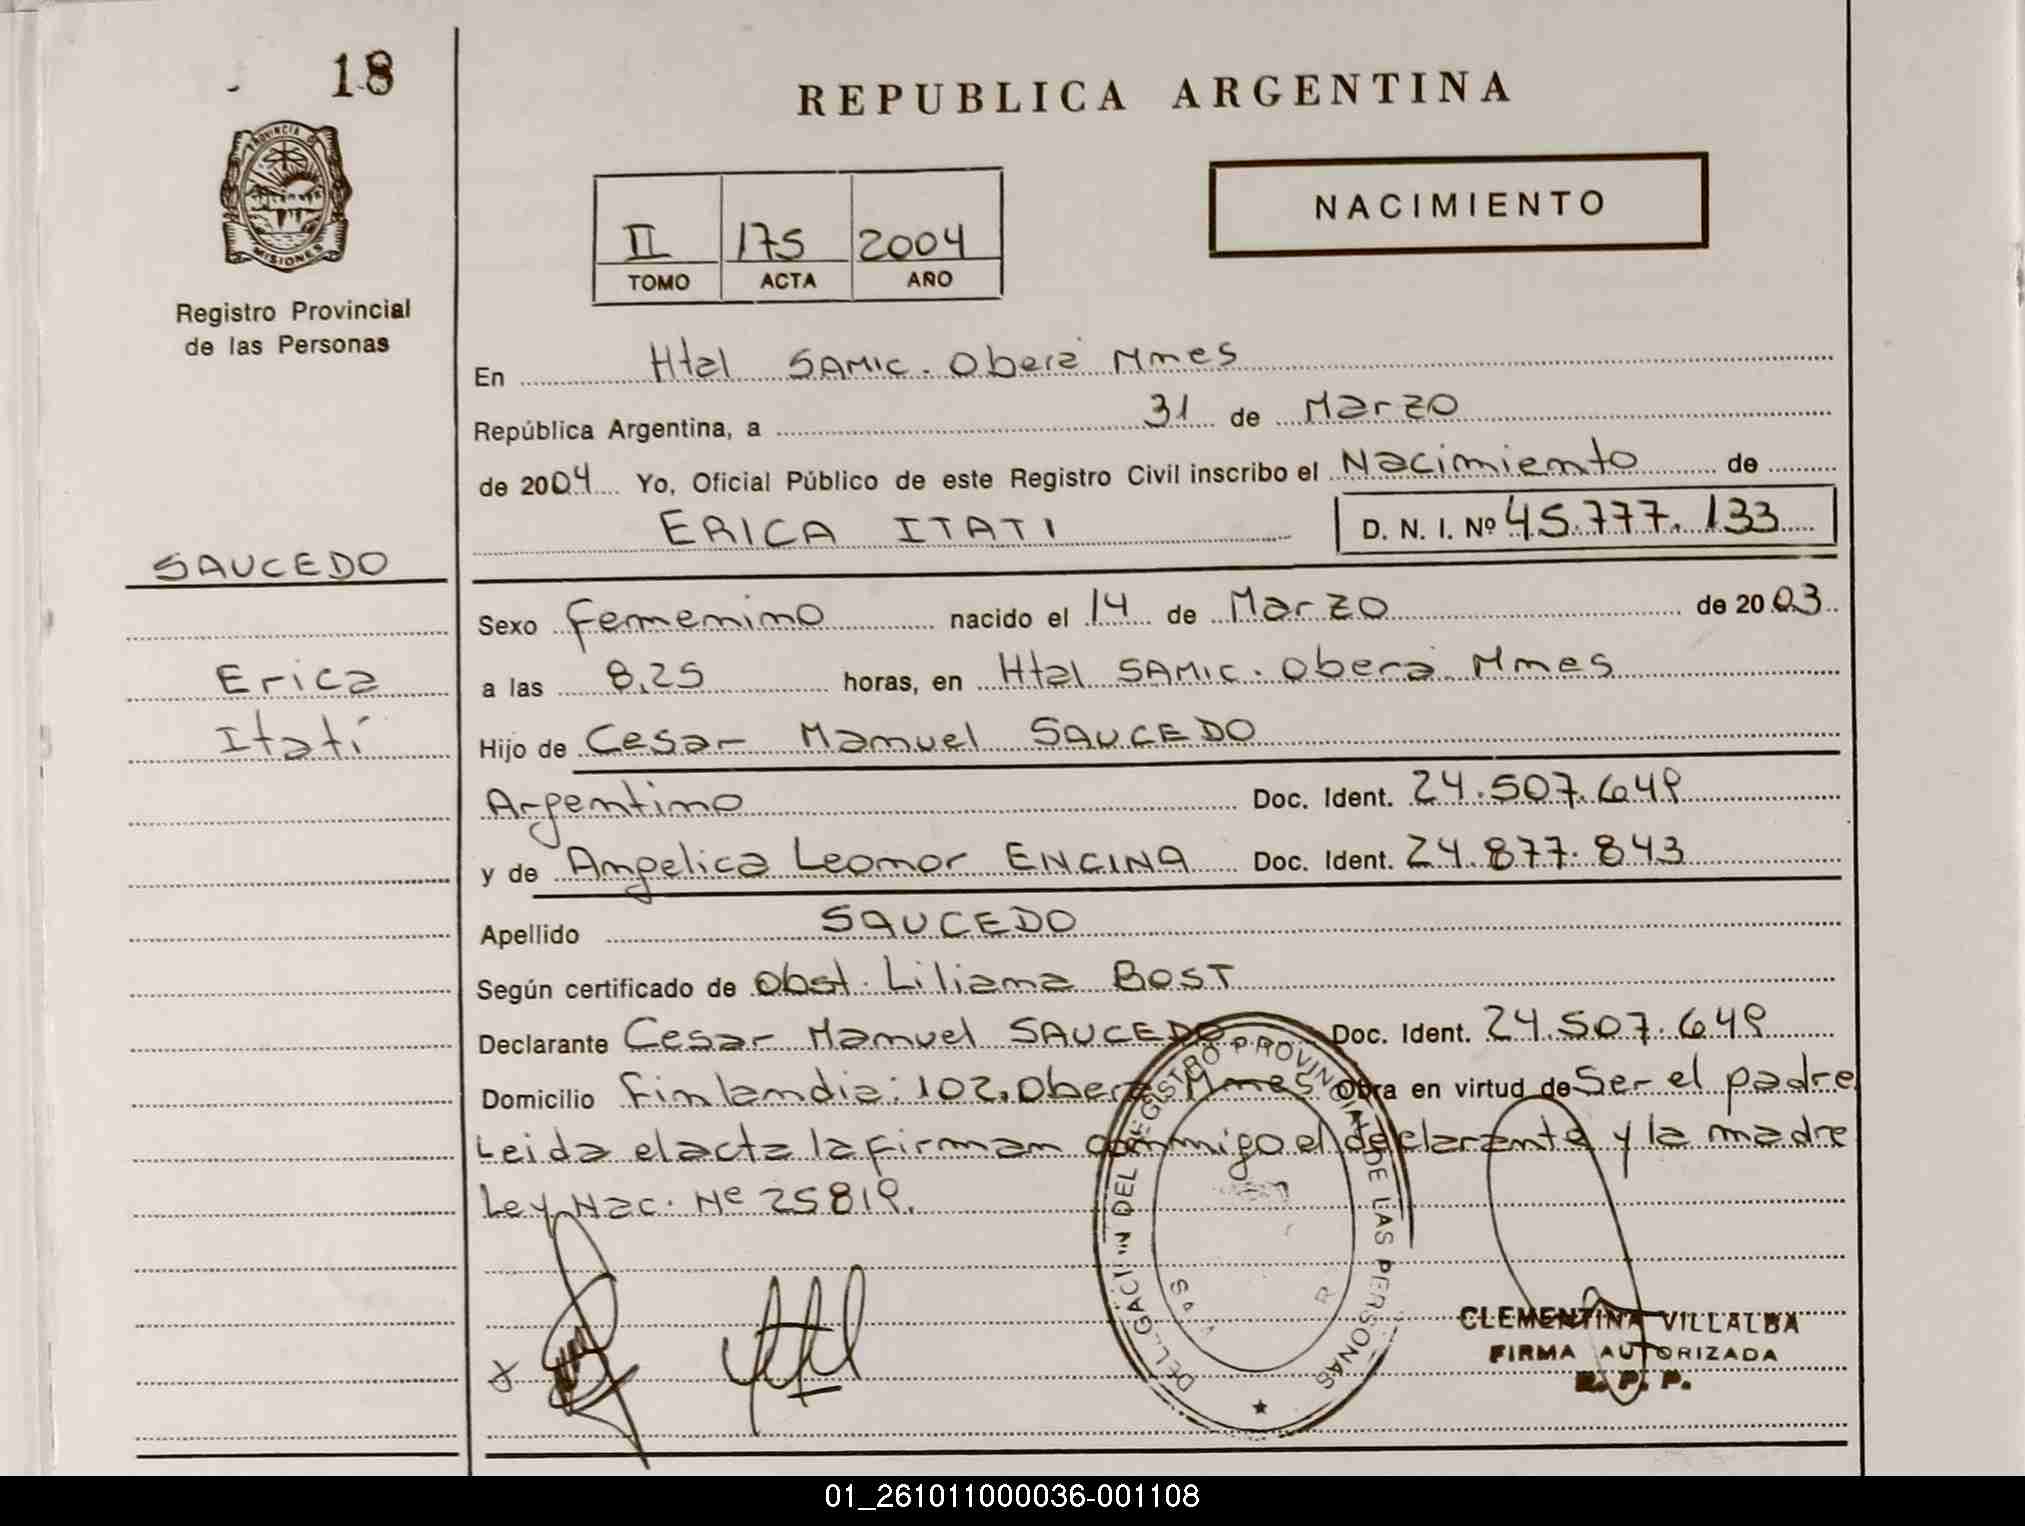 18
PROVINCIA DE
MISIONES
Registro Provincial
de las Personas
SAUCEDO
Erica
Itatí
REPUBLICA ARGENTINA
NACIMIENTO
II 175 2004
TOMO ACTA AÑO
En Htal SAMIC. Oberá Mnes
República Argentina, a 31 de Marzo
de 2004 Yo, Oficial Público de este Registro Civil inscribo el Nacimiento de
ERICA ITATI D. N. I. Nº 45.777.133
Sexo Femenino nacido el 14 de Marzo de 2003
a las 8,25 horas, en Htal SAMIC. Oberá Mnes
Hijo de Cesar Manuel SAUCEDO
Argentino Doc. Ident. 24.507.649
y de Angelica Leonor ENCINA Doc. Ident. 24.877.843
Apellido SAUCEDO
Según certificado de Obst. Liliana BOST
Declarante Cesar Manuel SAUCEDO Doc. Ident. 24.507.649
Domicilio Finlandia: 102, Oberá Mnes Obra en virtud de Ser el padre
Leida el acta la firman conmigo el declarante y la madre
Ley Nac. Nº 25819.
REGISTRO PROVINCIAL DE LAS PERSONAS
CLEMENTINA VILLALBA
FIRMA AUTORIZADA
R. P. P.
01_261011000036-001108